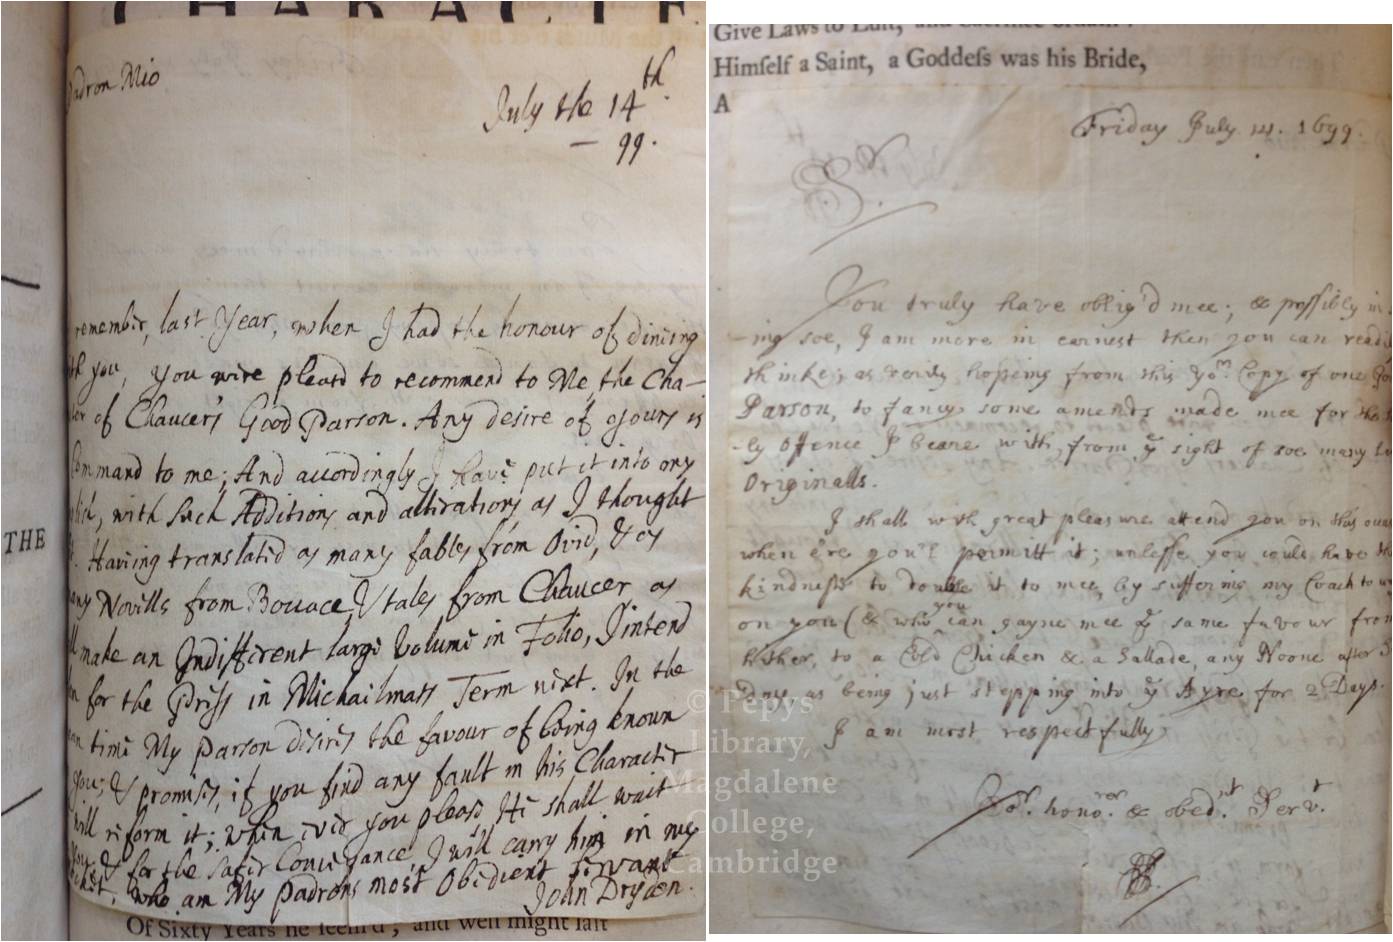 CHARACTE
Padron Mio
July the 14th
— 99.
remember, last Year, when I had the honour of dineing
th you, you were pleasd to recommend to Me, the Cha-
ter of Chaucer's Good Parson. Any desire of yours is
Command to me; And accordingly I have put it into my
lish, with such Additions and alterations as I thought
t. Having translated as many fables from Ovid, & as
any Novills from Boccace & tales from Chaucer as
ll make an Indifferent large volume in Folio, I intend
for the Press in Michaelmass Term next. In the
an time My Parson desires the favour of being known
you; & promises, if you find any fault in his Character
will reform it; when ever you please He shall wait
you, & for the safer Conveyance, I will carry him in my
cket, who am My Padrons most Obedient Servant
John Dryden.
Of Sixty Years he seem'd; and well might last
THE
Give Laws to and
Himself a Saint, a Goddess was his Bride,
A
Friday July 14. 1699.
Sr.
You truly have oblig'd mee; & possibly in
-ing soe, I am more in earnest then you can readi
thinke; as verily hopeing from this Yor Copy of one Go
Parson, to fancy some amends made mee for the
-ly Offence I beare with, from ye sight of soe many
Originalls.
I shall with great pleasure attend you on this
when ere you'l permitt it; unlesse you could have th
kindness to double it to mee, by suffering my Coach to
on you (& who you can gayne mee ye same favour from
hither, to a Cold Chicken & a Sallade, any Noone after
day, as being just stepping into ye Ayre for 2 Days.
I am most respectfully
Yor. honorer. & obednt Servt.
© Pepys
Library,
Magdalene
College,
Cambridge